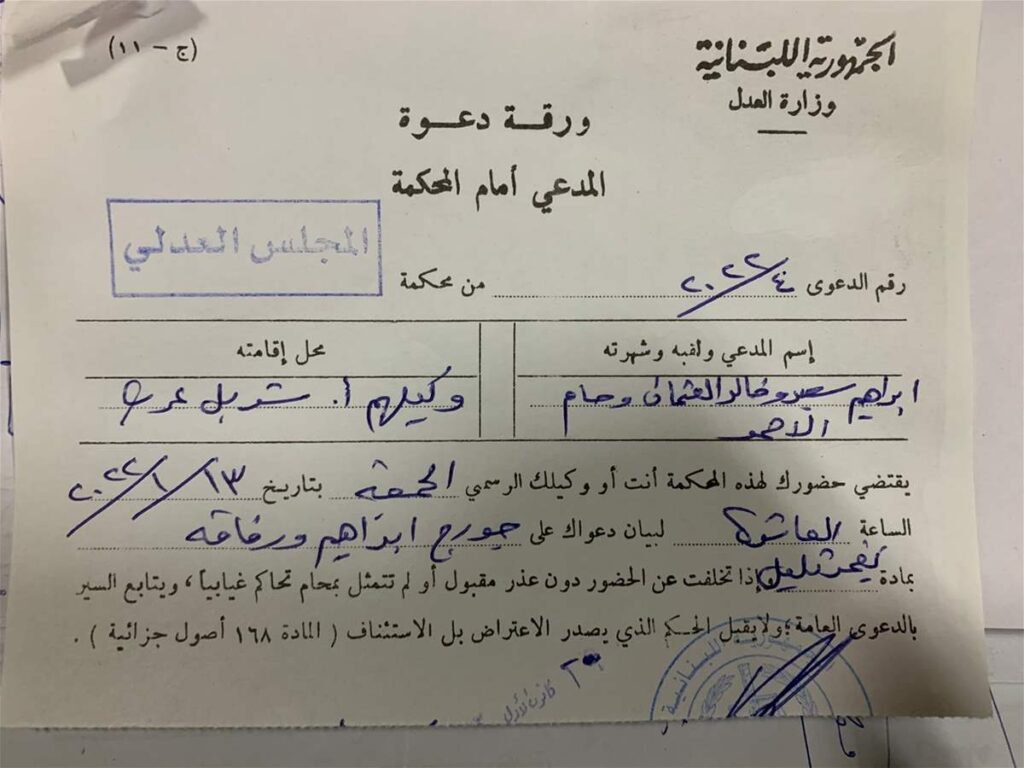 الجمهورية اللبنانية
(ج - ١١)
وزارة العدل
ورقة دعوة
المدعي أمام المحكمة
المجلس العدلي
رقم الدعوى ٤/٢٠٢٢ من محكمة
إسم المدعي ولقبه وشهرته محل إقامته
ابراهيم سعيد وخالد العثمان وحسام وكيلهم أ. شربل عرب
الأحمد
يقتضي حضورك لهذه المحكمة أنت أو وكيلك الرسمي الجمعة بتاريخ ١٣/١/٢٠٢٢
الساعة العاشرة لبيان دعواك على جورج ابراهيم ورفاقه
بمادة إذا تخلفت عن الحضور دون عذر مقبول أو لم تتمثل بمحام تحاكم غيابياً، ويتابع السير
بالدعوى العامة؛ ولا يقبل الحكم الذي يصدر الاعتراض بل الاستئناف ( المادة ١٦٨ أصول جزائية ) .
اللبنانية
كانون الأول